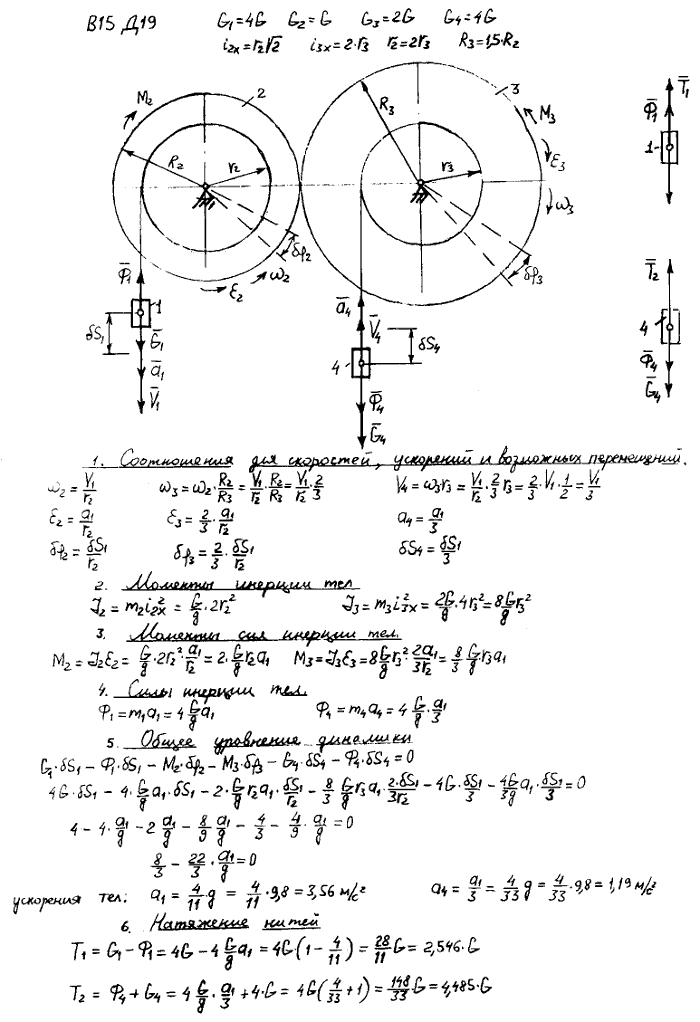 В15 Д19 G₁=4G G₂=G G₃=2G G₄=4G
i₂ₓ=r₂√2 i₃ₓ=2·r₃ r₂=2r₃ R₃=1,5·R₂
M₂ 2 3
R₂ r₂ R₃ r₃ M₃
ε₃
ω₃
δφ₂ δφ₃
ε₂ ω₂
Φ̄₁ 1
δS₁
Ḡ₁
ā₁
V̄₁
ā₄
V̄₄
δS₄
4
Φ̄₄
Ḡ₄
T̄₁
Φ̄₁
1
T̄₂
4
Φ̄₄
Ḡ₄
1. Соотношения для скоростей, ускорений и возможных перемещений.
ω₂ = V₁/r₂ ω₃ = ω₂·R₂/R₃ = V₁/r₂·R₂/R₃ = V₁/r₂·2/3 V₄ = ω₃r₃ = V₁/r₂·2/3 r₃ = 2/3·V₁·1/2 = V₁/3
ε₂ = a₁/r₂ ε₃ = 2/3·a₁/r₂ a₄ = a₁/3
δφ₂ = δS₁/r₂ δφ₃ = 2/3·δS₁/r₂ δS₄ = δS₁/3
2. Моменты инерции тел
J₂ = m₂i₂ₓ² = G/g·2r₂² J₃ = m₃i₃ₓ² = 2G/g·4r₃² = 8G/g r₃²
3. Моменты сил инерции тел.
M₂ = J₂ε₂ = G/g·2r₂²·a₁/r₂ = 2·G/g r₂a₁ M₃ = J₃ε₃ = 8G/g r₃²·2a₁/3r₂ = 8/3 G/g r₃a₁
4. Силы инерции тел.
Φ₁ = m₁a₁ = 4G/g a₁ Φ₄ = m₄a₄ = 4G/g·a₁/3
5. Общее уровнение динамики
G₁·δS₁ − Φ₁·δS₁ − M₂·δφ₂ − M₃·δφ₃ − G₄·δS₄ − Φ₄·δS₄ = 0
4G·δS₁ − 4·G/g a₁·δS₁ − 2·G/g r₂a₁·δS₁/r₂ − 8/3 G/g r₃a₁·2·δS₁/3r₂ − 4G·δS₁/3 − 4G/3g a₁·δS₁/3 = 0
4 − 4·a₁/g − 2 a₁/g − 8/9 a₁/g − 4/3 − 4/9·a₁/g = 0
8/3 − 22/3·a₁/g = 0
ускорения тел: a₁ = 4/11·g = 4/11·9,8 = 3,56 м/с² a₄ = a₁/3 = 4/33 g = 4/33·9,8 = 1,19 м/с²
6. Натяжение нитей
T₁ = G₁ − Φ₁ = 4G − 4G/g a₁ = 4G·(1 − 4/11) = 28/11 G = 2,546·G
T₂ = Φ₄ + G₄ = 4G/g·a₁/3 + 4·G = 4G(4/33 + 1) = 148/33·G = 4,485·G